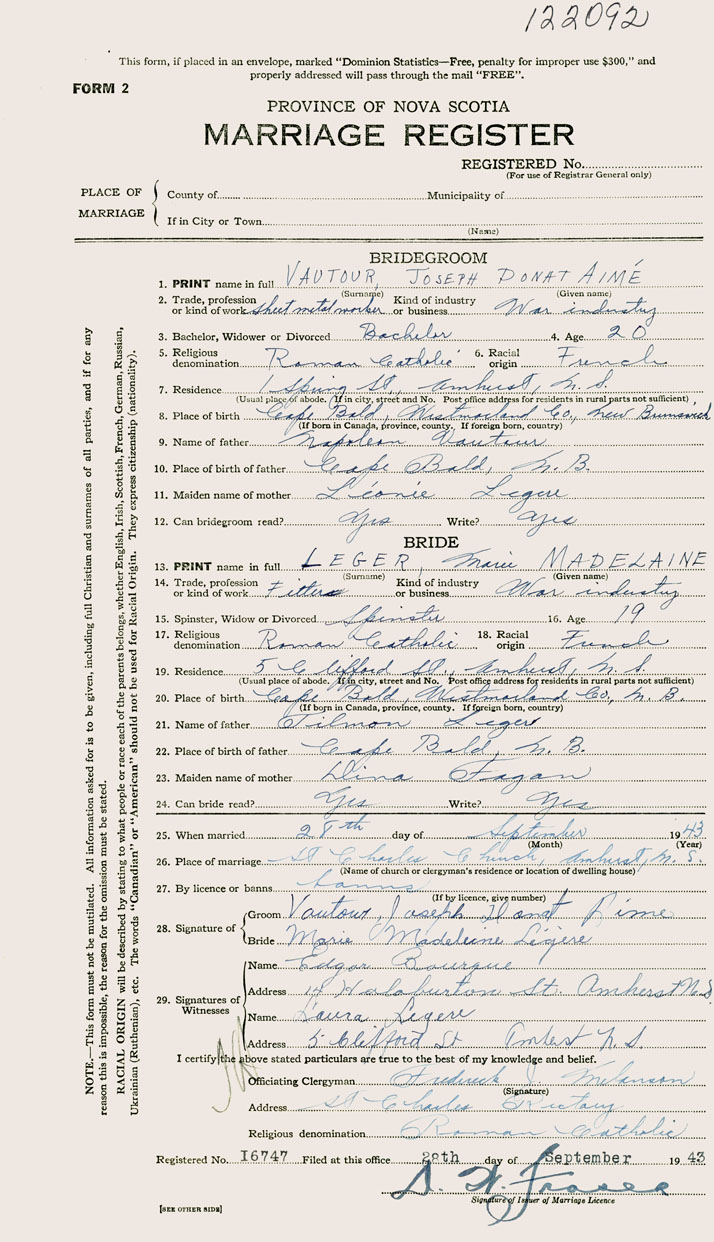 122092
This form, if placed in an envelope, marked "Dominion Statistics—Free, penalty for improper use $300," and
properly addressed will pass through the mail "FREE".
FORM 2
PROVINCE OF NOVA SCOTIA
MARRIAGE REGISTER
REGISTERED No.
(For use of Registrar General only)
PLACE OF MARRIAGE
County of Municipality of
If in City or Town
(Name)
BRIDEGROOM
1. PRINT name in full VAUTOUR, JOSEPH DONAT AIMÉ
(Surname) (Given name)
2. Trade, profession or kind of work sheet metal worker Kind of industry or business War industry
3. Bachelor, Widower or Divorced Bachelor 4. Age 20
5. Religious denomination Roman Catholic 6. Racial origin French
7. Residence 1 Spring St Amherst, N. S.
(Usual place of abode. If in city, street and No. Post office address for residents in rural parts not sufficient)
8. Place of birth Cape Bald, Westmorland Co., New Brunswick
(If born in Canada, province, county. If foreign born, country)
9. Name of father Napoleon Vautour
10. Place of birth of father Cape Bald, N. B.
11. Maiden name of mother Léonie Legere
12. Can bridegroom read? Yes Write? Yes
BRIDE
13. PRINT name in full LEGER, Marie MADELAINE
(Surname) (Given name)
14. Trade, profession or kind of work Fitter Kind of industry or business War industry
15. Spinster, Widow or Divorced Spinster 16. Age 19
17. Religious denomination Roman Catholic 18. Racial origin French
19. Residence 5 Clifford St., Amherst, N. S.
(Usual place of abode. If in city, street and No. Post office address for residents in rural parts not sufficient)
20. Place of birth Cape Bald, Westmorland Co., N. B.
(If born in Canada, province, county. If foreign born, country)
21. Name of father Tilmon Legere
22. Place of birth of father Cape Bald, N. B.
23. Maiden name of mother Dina Fagan
24. Can bride read? Yes Write? Yes
25. When married 28th day of September 1943
(Month) (Year)
26. Place of marriage St Charles Church, Amherst, N. S.
(Name of church or clergyman's residence or location of dwelling house)
27. By licence or banns banns
(If by licence, give number)
28. Signature of
Groom Vautour, Joseph Donat Aime
Bride Marie Madeleine Légère
29. Signatures of Witnesses
Name Edgar Bourque
Address 14 Halaburton St. Amherst N.S.
Name Laura Legere
Address 5 Clifford St Amherst N S.
I certify the above stated particulars are true to the best of my knowledge and belief.
Officiating Clergyman Frederick J Melanson
(Signature)
Address St Charles Rectory
Religious denomination Roman Catholic
Registered No. I6747 Filed at this office 28th day of September 1943
Signature of Issuer of Marriage Licence
[SEE OTHER SIDE]
NOTE.—This form must not be mutilated. All information asked for is to be given, including full Christian and surnames of all parties, and if for any
reason this is impossible, the reason for the omission must be stated.
RACIAL ORIGIN will be described by stating to what people or race each of the parents belongs, whether English, Irish, Scottish, French, German, Russian,
Ukrainian (Ruthenian), etc. The words "Canadian" or "American" should not be used for Racial Origin. They express citizenship (nationality).